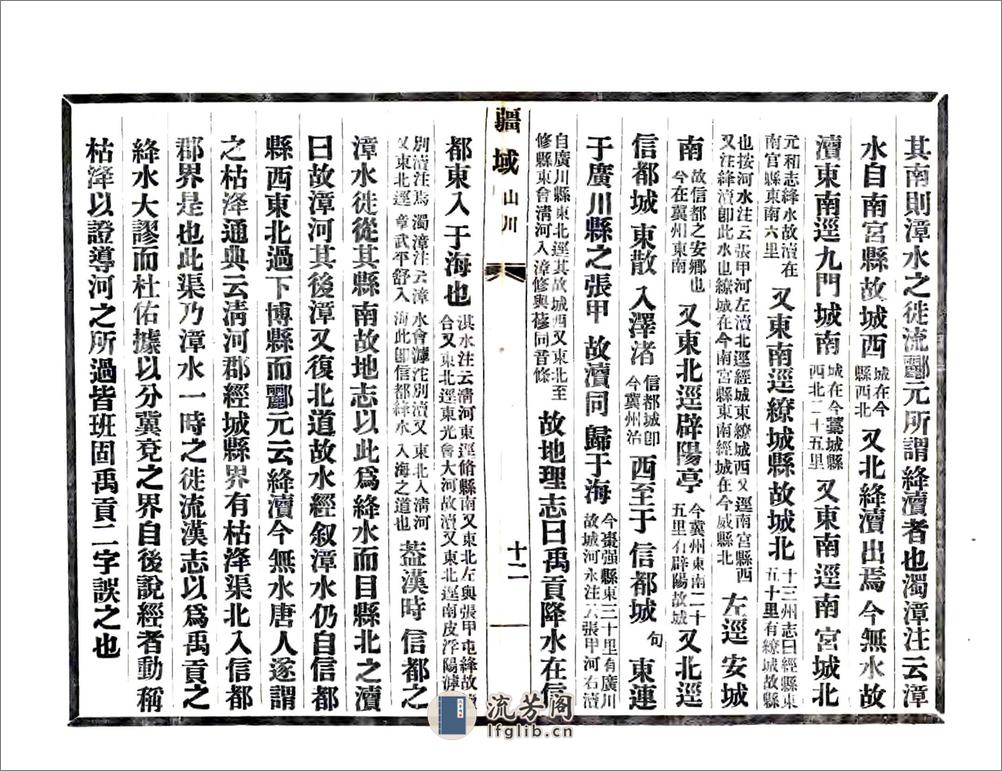 其南則漳水之徙流酈元所謂絳瀆者也濁漳注云漳
水自南宮縣故城西城在今縣西北又北絳瀆出焉今無水故
瀆東南逕九門城南城在今藁城縣西北二十五里又東南逕南宮城北
元和志絳水故瀆在南宮縣東南六里又東南逕繚城縣故城北十三州志曰經縣東五十里有繚城故縣
也按河水注云張甲河左瀆北逕經城東繚城西又逕南宮縣西又注絳瀆卽此水也繚城在今南宮縣東南經城在今威縣北左逕安城
南故信都之安鄉也今在冀州東南又東北逕辟陽亭今冀州東南二十五里有辟陽故城又北逕
信都城東散入澤渚信都城卽今冀州治西至于信都城句東連
于廣川縣之張甲故瀆同歸于海今棗强縣東三十里有廣川故城河水注云張甲河右瀆
自廣川縣東北逕其故城西又東北至修縣東會淸河入漳修與蓚同音條故地理志曰禹貢降水在信
疆域 山川 十二
都東入于海也淇水注云淸河東逕脩縣南又東北左與張甲屯絳故瀆合又東北逕東光會大河故瀆又東北逕南皮浮陽
別瀆注焉濁漳注云漳水會滹沱別瀆又東北入淸河又東北逕章武平舒入海此卽信都絳水入海之道也蓋漢時信都之
漳水徙從其縣南故地志以此爲絳水而目縣北之瀆
曰故漳河其後漳又復北道故水經叙漳水仍自信都
縣西東北過下博縣而酈元云絳瀆今無水唐人遂謂
之枯洚通典云淸河郡經城縣界有枯洚渠北入信都
郡界是也此渠乃漳水一時之徙流漢志以爲禹貢之
絳水大謬而杜佑據以分冀兗之界自後說經者動稱
枯洚以證導河之所過皆班固禹貢二字誤之也
流芳阁
lfglib.cn